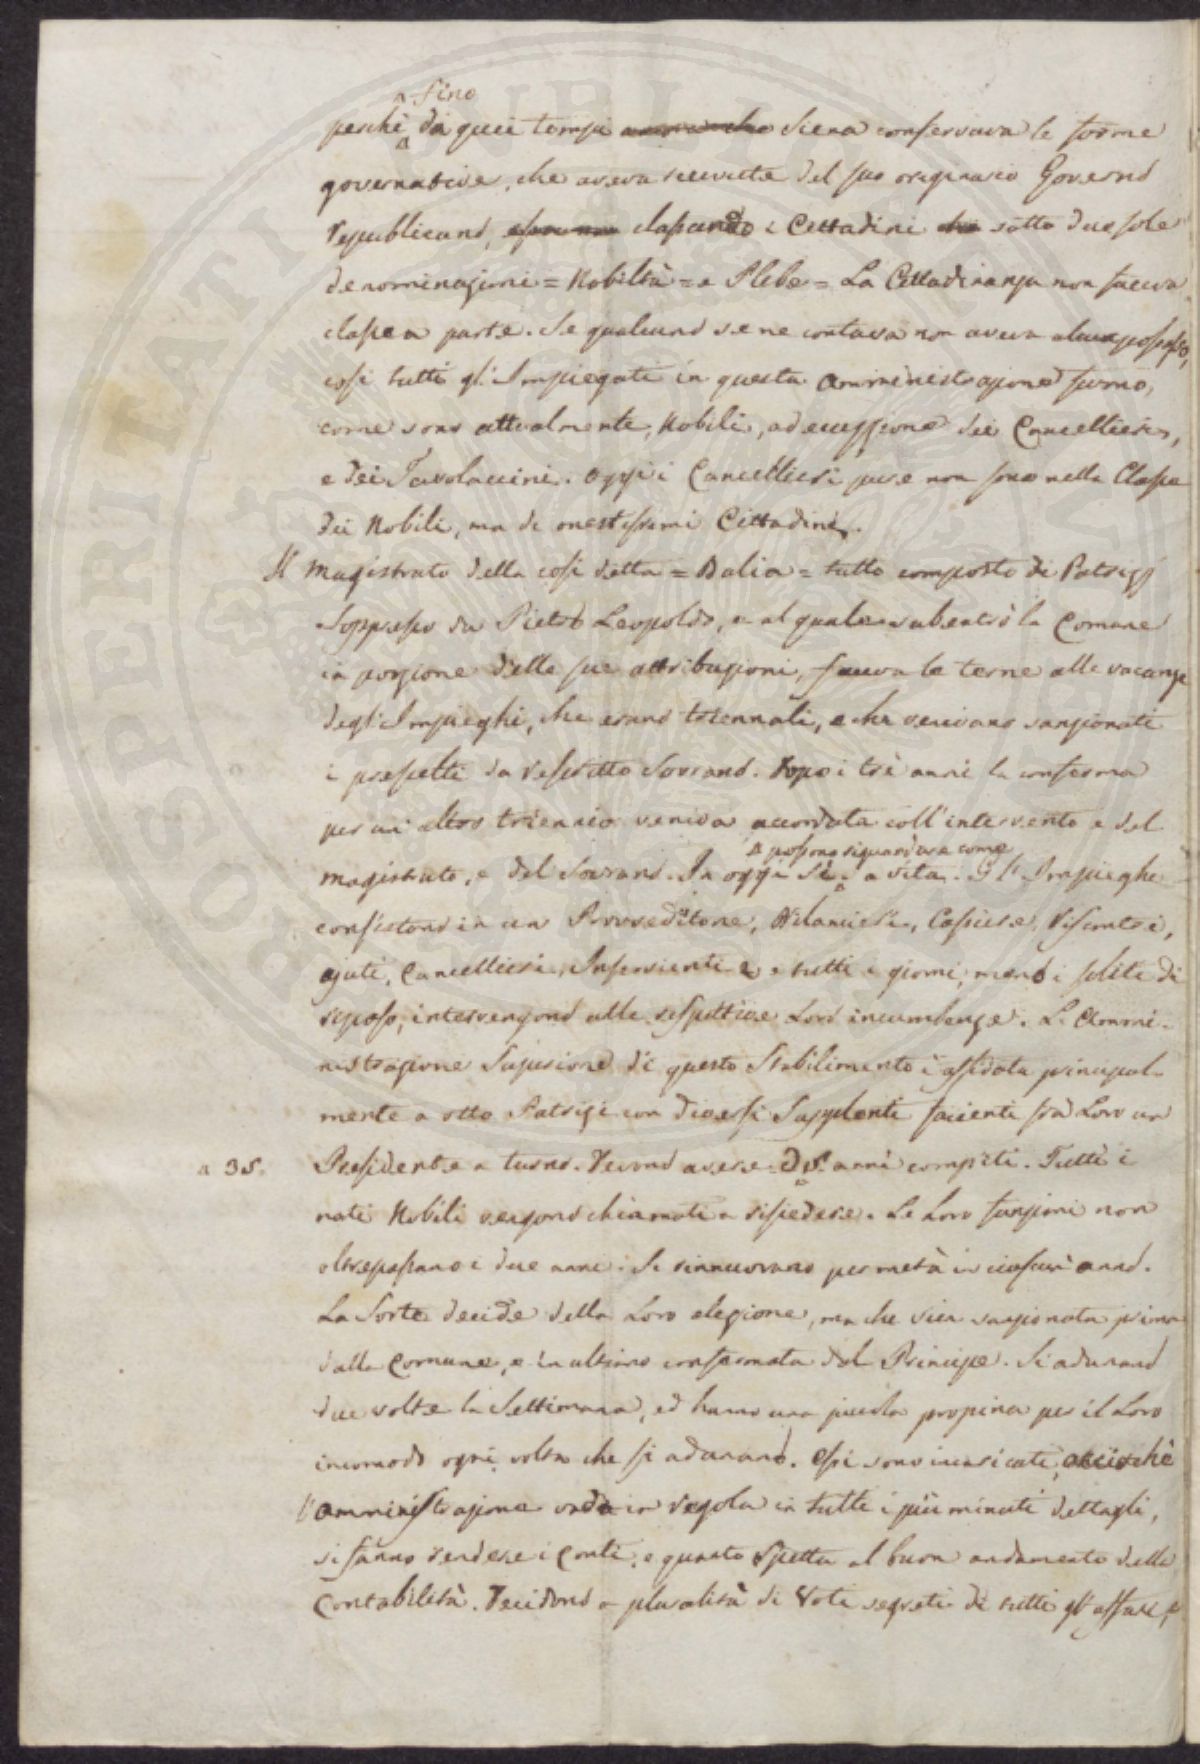 ^ fino
perchè da quei tempi Siena conservava le forme
governative, che aveva ricevute del suo originario Governo
Republicano, classando i Cittadini sotto due sole
denominazioni = Nobiltà = e Plebe = La Cittadinanza non faceva
classe a parte. Se qualcuno se ne contava non aveva alcun possesso,
così tutti gl'Impiegati in questa Amministrazione furno,
come sono attualmente, Nobili, ad eccezzione dei Cancellieri,
e dei Tavolaccini. Oggi i Cancellieri pure non sono nella Classe
dei Nobili, ma di onestissimi Cittadini.
Il Magistrato della così detta = Balia = tutto composto di Patrizj
Soppresso da Pietro Leopoldo, e al quale subentrò la Comune
in porzione delle sue attribuzioni, faceva le terne alle vacanze
degl'Impieghi, che erano triennali, e che venivano sanzionati
i prescelti da Rescritto Sovrano. Dopo i trè anni la conferma
per un altro triennio veniva accordata coll'intervento e del
^ possono riguardarsi come
Magistrato, e del Sovrano. In oggi Si a vita. Gl'Impieghi
consistono in un Provveditore, Bilancieri, Cassiere, Riscontri,
ajuti, Cancellieri, Inservienti e tutti i giorni, meno i soliti di
riposo, intervengono alle respettive Loro incumbenze. L'Ammi-
nistrazione Superiore di questo Stabilimento è affidata principal-
mente a otto Patrizi con diversi Supplenti facienti frà Loro un
^ 35. Presidente a turno. Devono avere anni compiti. Tutti i
nati Nobili vengono chiamati a risiedere. Le Loro funzioni non
oltrepassano i due anni. Si rinnuovano per metà in ciascun anno.
La Sorte decide della Loro elezione, ma che vien sanzionata prima
dalla Comune, e in ultimo confermata dal Principe. Si adunano
due volte la Settimana, ed hanno una piccola propina per il Loro
incomodo ogni volta che si adunano. Essi sono incaricati, acciochè
l'amministrazione vada in regola in tutti i più minuti dettagli,
si fanno rendere i Conti, e quanto Spetta al buon andamento della
Contabilità. Decidono a pluralità di Voti segreti di tutti gli affari,